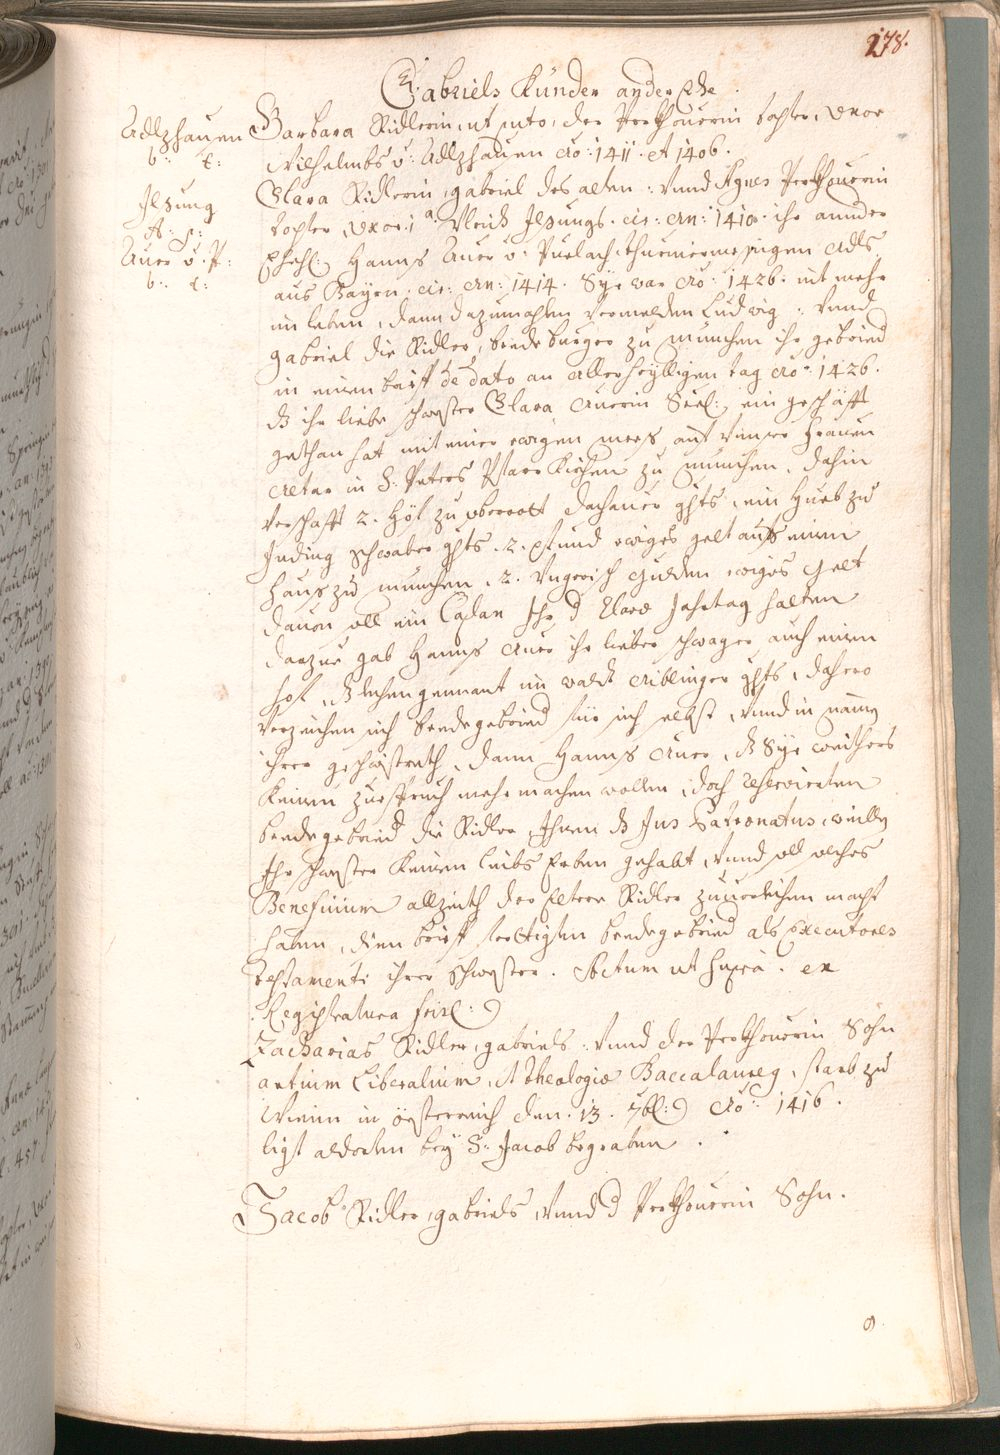 278.
Gabriels Künder ander Ehe.
Adlzhausen
b: E:
Barbara Ridlerin, ut puto, der Perkhouerin tochter, Uxor
Wilhelmbs v: Adlzhausen Ao: 1411. et 1406.
Jlsung
A: S:
Auer v. P:
b: E:
Clara Ridlerin, gabriel des alten: Vnnd Agnes Perkhouerin
tochter, Uxor. 1.a Vlrich Jlsungs. cir: an: 1410. ihr annder
Ehehl: Hanns Auer v: Puelach, thurmermaningen Adls
aus Bayrn. cir: an: 1414. Sye war Ao: 1426. nit mehr
im leben, dann dazumahlen vermelden Ludwig: Vnnd
gabriel die Ridler, beede burger zu München ihr gebrüed
in einem brieff de dato an Allerheylligen tag Ao: 1426.
dz ihr liebe schwester Clara Auerin Seel: ein geschäfft
gethan hat mit einer ewigen mess auf Vnnser Frauen
Altar in S: Peters Pfarr Kirchen zu München. dahin
verschafft 2. Höf zu oberrott dachauer ghts, ein Hueb zu
Inding Schwaber ghts. 2. Pfund ewigs gelt auss einem
Haus zu München, 2. Vngerisch gulden ewigs gelt
dauon soll ein Caplan Ihr d Clarae Jahrtag halten
darzue gab Hanns Auer ihr lieber schwager auch einen
hof, genannt im waldt Aiblinger ghts, dahero
verzeichen sich beede gebrüed für sich selbst, Vnnd in namen
ihrer geschwistreth, dann Hanns Auer, dz Sye weithers
keinen zuespruch mehr machen wollen, doch reserviraten
beede gebrüed die Ridler, Ihnen dz Jus Patronatus, weilln
Ihr schwester keinen leibs Erben gehabt, Vnnd soll solches
Beneficium allzeith der Eltere Ridler zuuerleichen macht
haben, disen brieff fertigten beede gebrüed als Executores
testamenti ihrer schwester. Actum ut supra. ex
Registratura
Zacharias Ridler, gabriels: Vnnd der Perkhouerin Sohn
artium Liberalium, et theologiae Baccalaureg, starb zu
Wienn in össterreich den. 13. 7b: Ao: 1416.
ligt aldorten bey S: Jacob begraben.
Jacob Ridler, gabriels, Vnnd d Perkhouerin Sohn.